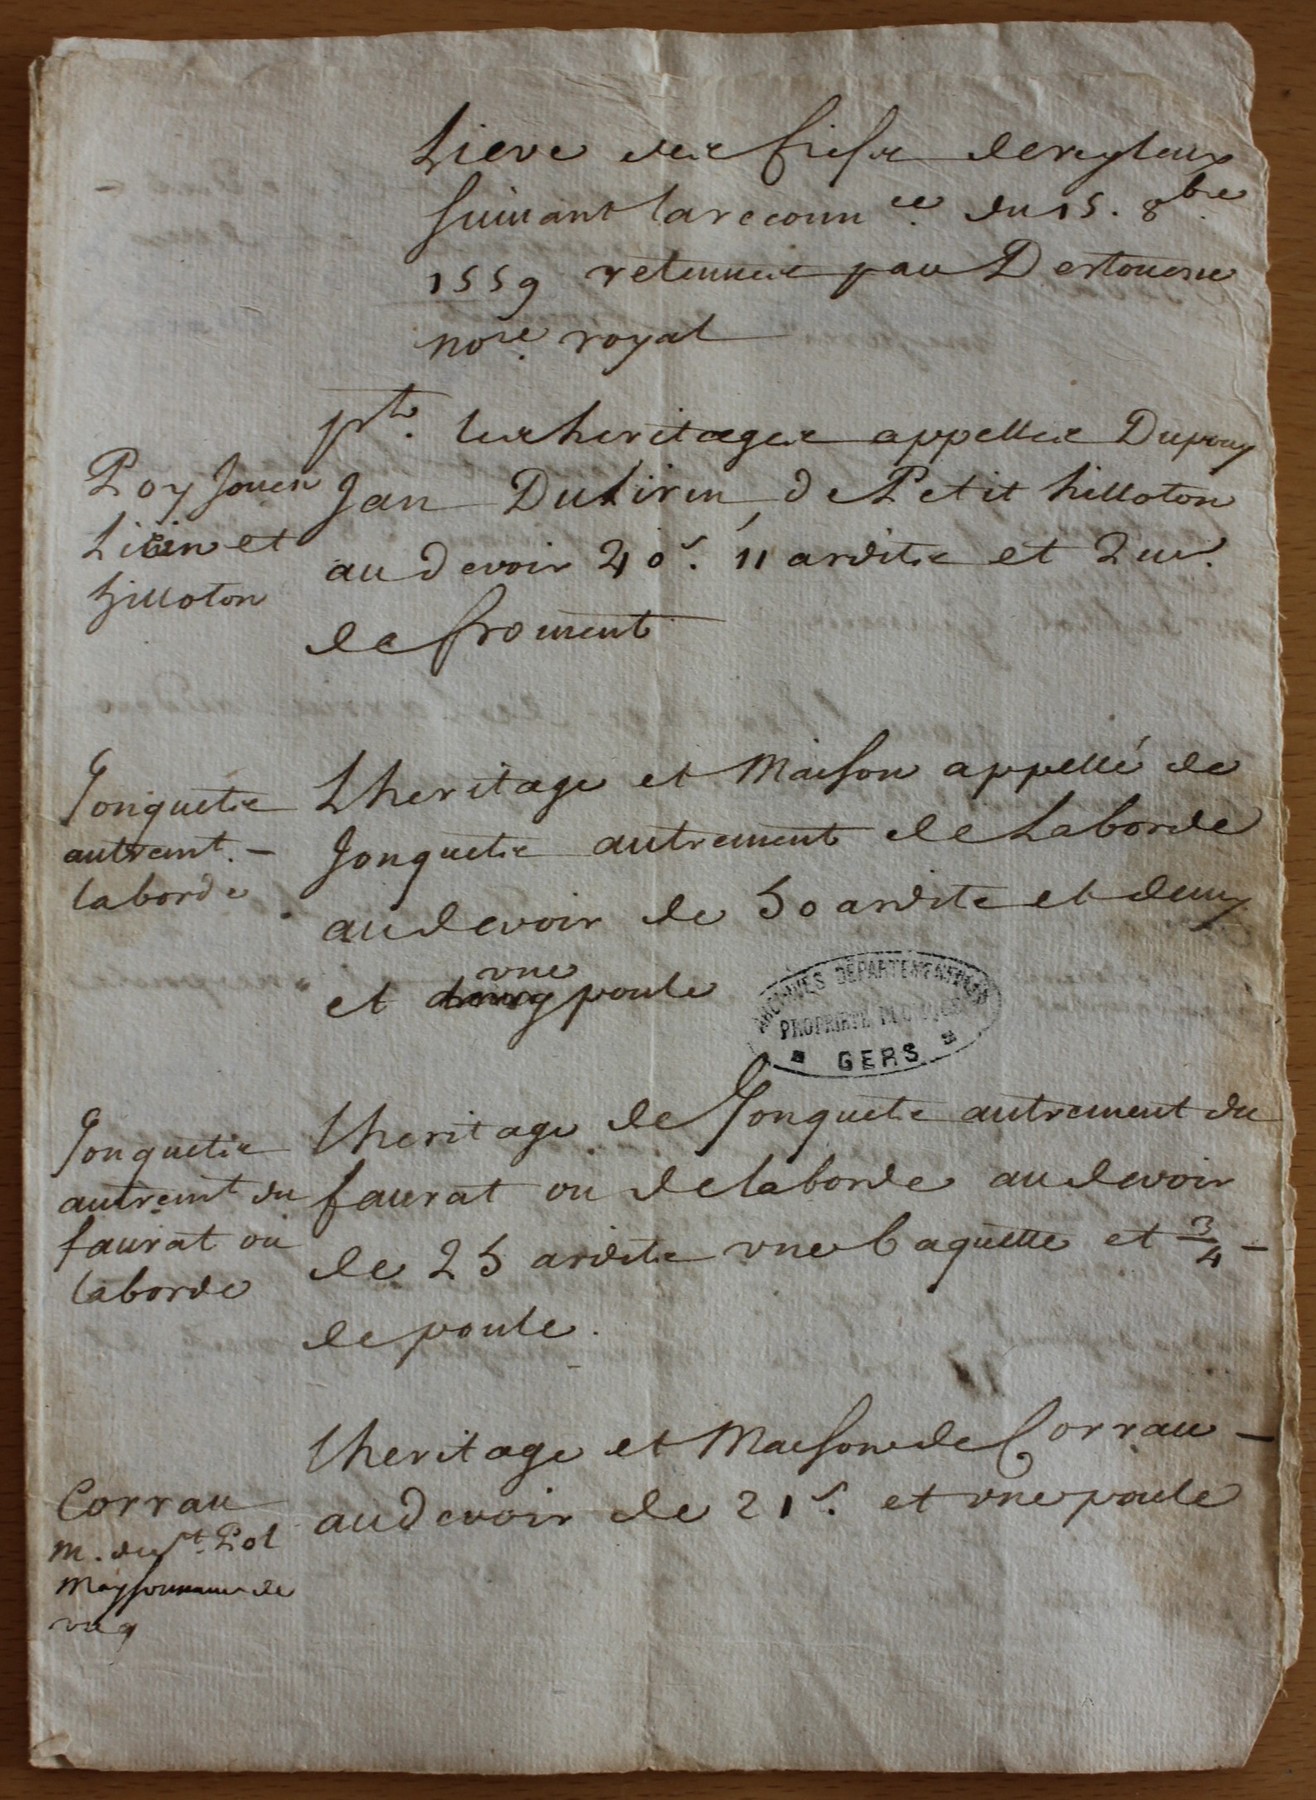 Lieve des fiefs de
suivant la reconn.ce du 15. 8bre
1559 retenue par Destouesse
nore. royal
pt. les heritages appelles Dupouy
Poy Jouen
Jan Dulirin, de Petit hilloton
Lirin et
hilloton
au devoir 40s. 11 ardits et 2 
de froment
Jonquets
autremt. —
laborde
Lheritage et Maison appellé de
Jonquets autrement de Laborde
au devoir de 50 ardits et demy
et une poule
ARCHIVES DÉPARTEMENTALES
PROPRIÉTÉ PUBLIQUE
GERS
Jonquets
autremt du
faurat ou
laborde
lheritage de Jonquets autrement du
faurat ou de laborde au devoir
de 25 ardits une baquette et 3/4 —
de poule.
Corrau
m. du st. Pol
de
lheritage et Maison de Corrau —
au devoir de 21s. et une poule